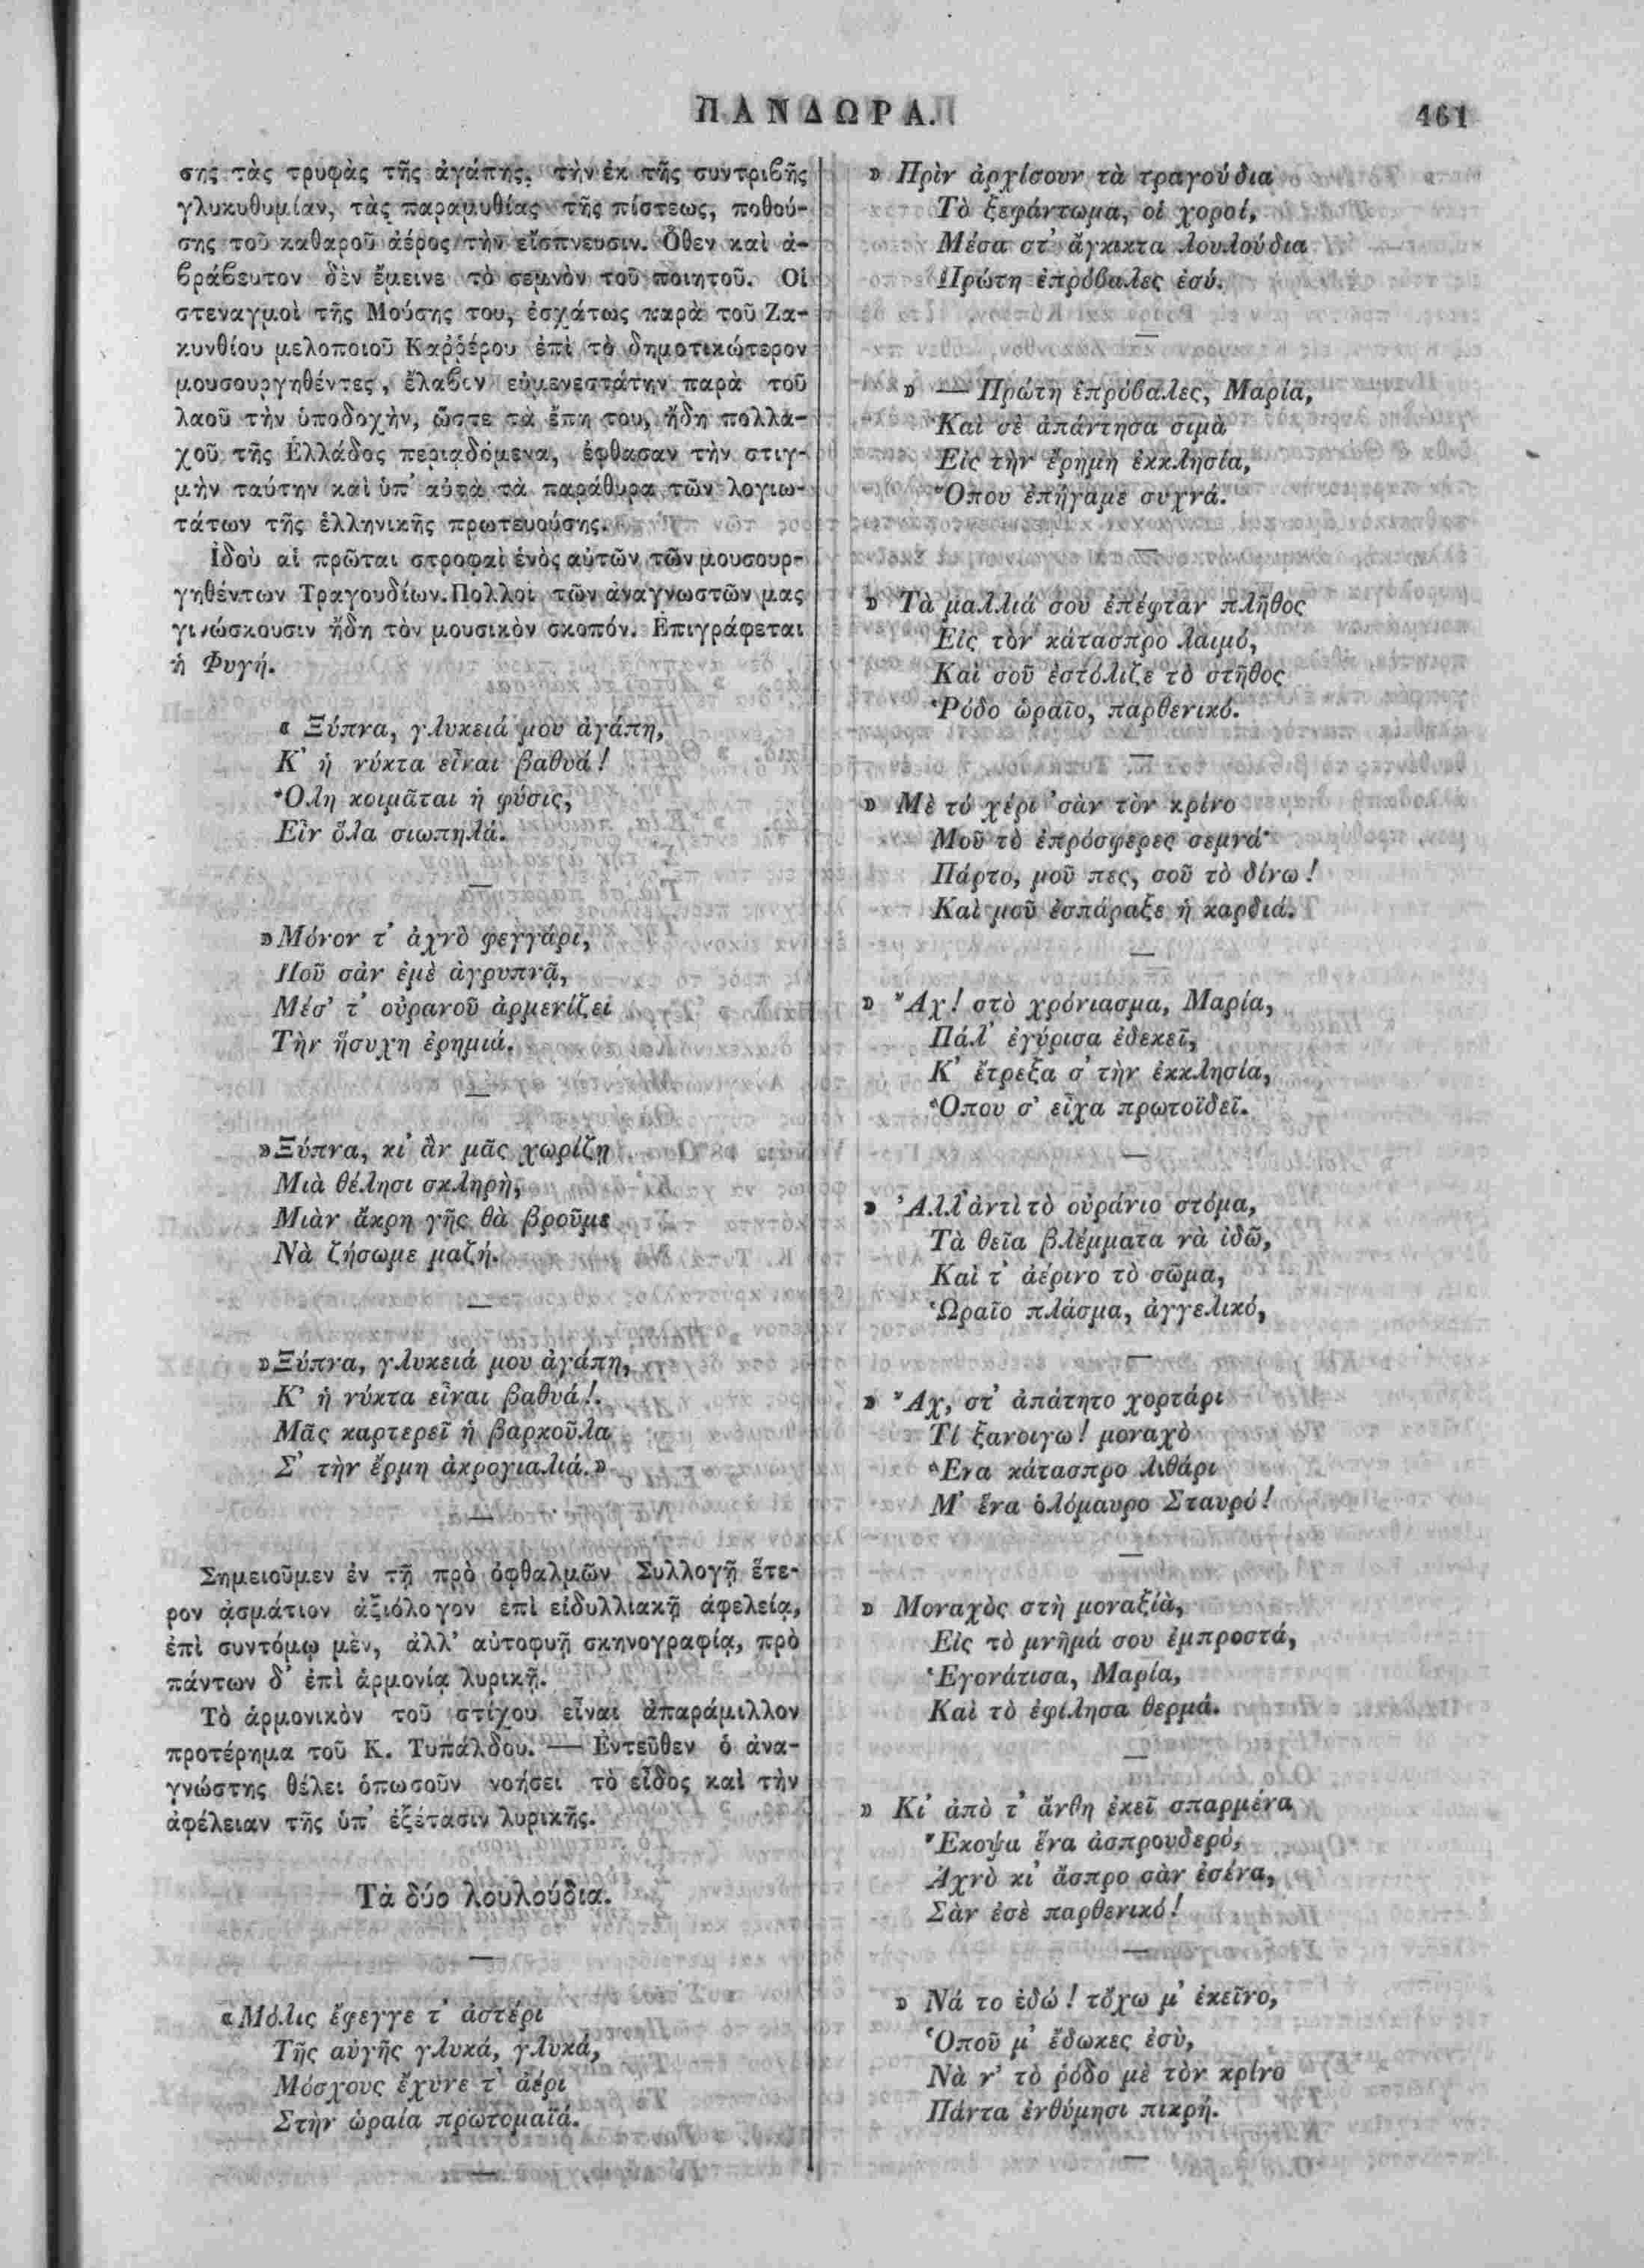 ΠΑΝΔΩΡΑ.
461
σης τὰς τρυφὰς τῆς ἀγάπης, τὴν ἐκ τῆς συντριβῆς
γλυκυθυμίαν, τὰς παραμυθίας τῆς πίστεως, ποθού-
σης τοῦ καθαροῦ ἀέρος τὴν εἴσπνευσιν. Ὅθεν καὶ ἀ-
βράβευτον δὲν ἔμεινε τὸ σεμνὸν τοῦ ποιητοῦ. Οἱ
στεναγμοὶ τῆς Μούσης του, ἐσχάτως παρὰ τοῦ Ζα-
κυνθίου μελοποιοῦ Καῤῥέρου ἐπὶ τὸ δημοτικώτερον
μουσουργηθέντες, ἔλαβον εὐμενεστάτην παρὰ τοῦ
λαοῦ τὴν ὑποδοχὴν, ὥστε τὰ ἔπη του, ἤδη πολλα-
χοῦ τῆς Ἑλλάδος περιαδόμενα, ἔφθασαν τὴν στιγ-
μὴν ταύτην καὶ ὑπ' αὐτὰ τὰ παράθυρα τῶν λογιω-
τάτων τῆς ἑλληνικῆς πρωτευούσης.
Ἰδοὺ αἱ πρῶται στροφαὶ ἑνὸς αὐτῶν τῶν μουσουρ-
γηθέντων Τραγουδίων. Πολλοὶ τῶν ἀναγνωστῶν μας
γινώσκουσιν ἤδη τὸν μουσικὸν σκοπόν. Ἐπιγράφεται
ἡ Φυγή.
« Ξύπνα, γλυκειά μου ἀγάπη,
Κ' ἡ νύκτα εἶναι βαθυά!
Ὅλη κοιμᾶται ἡ φύσις,
Εἶν ὅλα σιωπηλά.
—
» Μόνον τ' ἀχνὸ φεγγάρι,
Ποῦ σὰν ἐμὲ ἀγρυπνᾷ,
Μέσ' τ' οὐρανοῦ ἀρμενίζει
Τὴν ἥσυχη ἐρημιά.
—
» Ξύπνα, κι' ἂν μᾶς χωρίζῃ
Μιὰ θέλησι σκληρὴ,
Μιὰν ἄκρη γῆς θὰ βροῦμε
Νὰ ζήσωμε μαζή.
—
» Ξύπνα, γλυκειά μου ἀγάπη,
Κ' ἡ νύκτα εἶναι βαθυά!
Μᾶς καρτερεῖ ἡ βαρκοῦλα
Σ' τὴν ἔρμη ἀκρογιαλιά.»
—
Σημειοῦμεν ἐν τῇ πρὸ ὀφθαλμῶν Συλλογῇ ἕτε-
ρον ᾀσμάτιον ἀξιόλογον ἐπὶ εἰδυλλιακῇ ἀφελείᾳ,
ἐπὶ συντόμῳ μὲν, ἀλλ' αὐτοφυῇ σκηνογραφίᾳ, πρὸ
πάντων δ' ἐπὶ ἁρμονίᾳ λυρικῇ.
Τὸ ἁρμονικὸν τοῦ στίχου εἶναι ἀπαράμιλλον
προτέρημα τοῦ Κ. Τυπάλδου. — Ἐντεῦθεν ὁ ἀνα-
γνώστης θέλει ὁπωσοῦν νοήσει τὸ εἶδος καὶ τὴν
ἀφέλειαν τῆς ὑπ' ἐξέτασιν λυρικῆς.
Τὰ δύο λουλούδια.
—
« Μόλις ἔφεγγε τ' ἀστέρι
Τῆς αὐγῆς γλυκά, γλυκά,
Μόσχους ἔχυνε τ' ἀέρι
Στὴν ὡραία πρωτομαϊά.
—
» Πρὶν ἀρχίσουν τὰ τραγούδια
Τὸ ξεφάντωμα, οἱ χοροί,
Μέσα στ' ἄγκικτα λουλούδια
Πρώτη ἐπρόβαλες ἐσύ.
—
» — Πρώτη ἐπρόβαλες, Μαρία,
Καὶ σὲ ἀπάντησα σιμὰ
Εἰς τὴν ἔρημη ἐκκλησία,
Ὅπου ἐπήγαμε συχνά.
—
» Τὰ μαλλιά σου ἐπέφταν πλῆθος
Εἰς τὸν κάτασπρο λαιμό,
Καὶ σοῦ ἐστόλιζε τὸ στῆθος
Ῥόδο ὡραῖο, παρθενικό.
—
» Μὲ τὸ χέρι 'σὰν τὸν κρίνο
Μοῦ τὸ ἐπρόσφερες σεμνά·
Πάρτο, μοῦ πες, σοῦ τὸ δίνω!
Καὶ μοῦ ἐσπάραξε ἡ καρδιά.
—
» Ἄχ! στὸ χρόνιασμα, Μαρία,
Πάλ' ἐγύρισα ἐδεκεῖ,
Κ' ἔτρεξα σ' τὴν ἐκκλησία,
Ὅπου σ' εἶχα πρωτοϊδεῖ.
—
» Ἀλλ' ἀντὶ τὸ οὐράνιο στόμα,
Τὰ θεῖα βλέμματα νὰ ἰδῶ,
Καὶ τ' ἀέρινο τὸ σῶμα,
Ὡραῖο πλάσμα, ἀγγελικό,
—
» Ἄχ, στ' ἀπάτητο χορτάρι
Τί ξανοιγω! μοναχὸ
Ἕνα κάτασπρο λιθάρι
Μ' ἕνα ὁλόμαυρο Σταυρό!
—
» Μοναχὸς στὴ μοναξιὰ,
Εἰς τὸ μνῆμά σου ἐμπροστά,
Ἐγονάτισα, Μαρία,
Καὶ τὸ ἐφίλησα θερμά.
—
» Κι' ἀπὸ τ' ἄνθη ἐκεῖ σπαρμένα
Ἔκοψα ἕνα ἀσπρουδερό,
Ἀχνὸ κι' ἄσπρο σὰν ἐσένα,
Σὰν ἐσὲ παρθενικό!
—
» Νά το ἐδώ! τὄχω μ' ἐκεῖνο,
Ὁποῦ μ' ἔδωκες ἐσὺ,
Νὰ ν' τὸ ῥόδο μὲ τὸν κρίνο
Πάντα ἐνθύμησι πικρή.
—